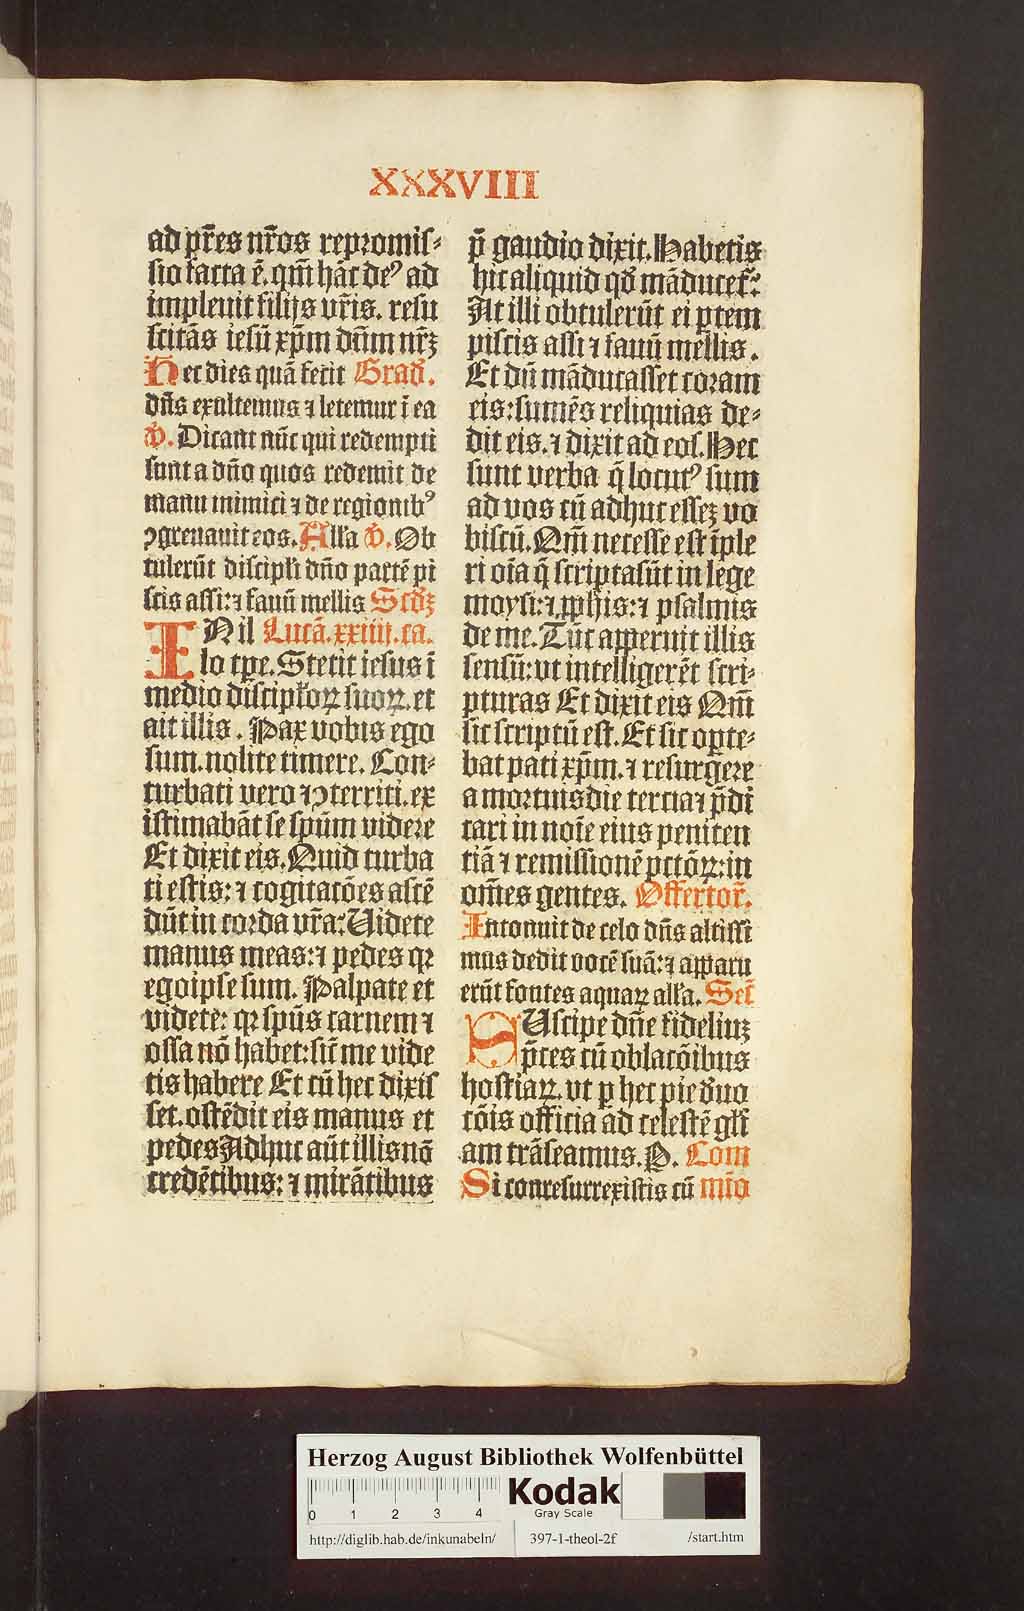 XXXVIII
ad pr̄es nr̄os repromis⸗
sio facta ē. qm̄ hāc deꝰ ad
impleuit filijs vr̄is. resu
scitās iesū xp̄m dn̄m nr̄ꝫ
Hec dies quā fecit Grad̄.
dn̄s exultemus ⁊ letemur ī ea
℣. Dicant nūc qui redempti
sunt a dn̄o quos redemit de
manu inimici ⁊ de regionibꝰ
ꝯgreuauit eos. All'a ℣. Ob
tulerūt discipl'i dn̄o partē pi
scis assi: ⁊ fauū mellis Scd̄ꝫ
INil Lucā. xxiiij. ca.
lo tꝑe. Stetit iesus ī
medio discipl'oꝝ suoꝝ. et
ait illis. Pax vobis ego
sum. nolite timere. Con⸗
turbati vero ⁊ ꝯterriti. ex
istimabāt se spūm videre
Et dixit eis. Quid turba
ti estis: ⁊ cogitacōes ascē
dūt in corda vr̄a: Uidete
manus meas: ⁊ pedes qꝛ
ego ipse sum. Palpate et
videte: qꝛ spūs carnem ⁊
ossa nō habet: sic̄ me vide
tis habere Et cū hec dixis
set. ostēdit eis manus et
pedes Adhuc aūt illis nō
credētibus: ⁊ mirātibus
p̄ gaudio dixit. Habetis
hic aliquid qd̄ māducet᷑:
At illi obtulerūt ei ꝑtem
piscis assi ⁊ fauū mellis.
Et dū māducasset coram
eis: sumēs reliquias de⸗
dit eis. ⁊ dixit ad eos. Hec
sunt verba q̄ locutꝰ sum
ad vos cū adhuc esseꝫ vo
biscū. Qm̄ necesse est īple
ri oīa q̄ scripta sūt in lege
moysi: ⁊ ꝓphis: ⁊ psalmis
de me. Tūc aꝑeruit illis
sensū: vt intelligerēt scri⸗
pturas Et dixit eis Qm̄
sic scriptū est. Et sic oꝑte⸗
bat pati xp̄m. ⁊ resurgere
a mortuis die tercia ⁊ p̄di
cari in noīe eius peniten
tiā ⁊ remissionē pctōꝝ: in
om̄es gentes. Offertor̄.
Intonuit de celo dn̄s altissi
mus dedit vocē suā: ⁊ apparu
erūt fontes aquaꝝ all'a. Sec̄
SUscipe dn̄e fideliuꝫ
p̄ces cū oblacōibus
hostiaꝝ. vt ꝑ hec pie d'uo
cōis officia ad celestē gl'i
am trāseamus. P. Com
Si conresurrexistis cū mīo
Herzog August Bibliothek Wolfenbüttel
0 1 2 3 4
Kodak
Gray Scale
http://diglib.hab.de/inkunabeln/ 397-1-theol-2f /start.htm